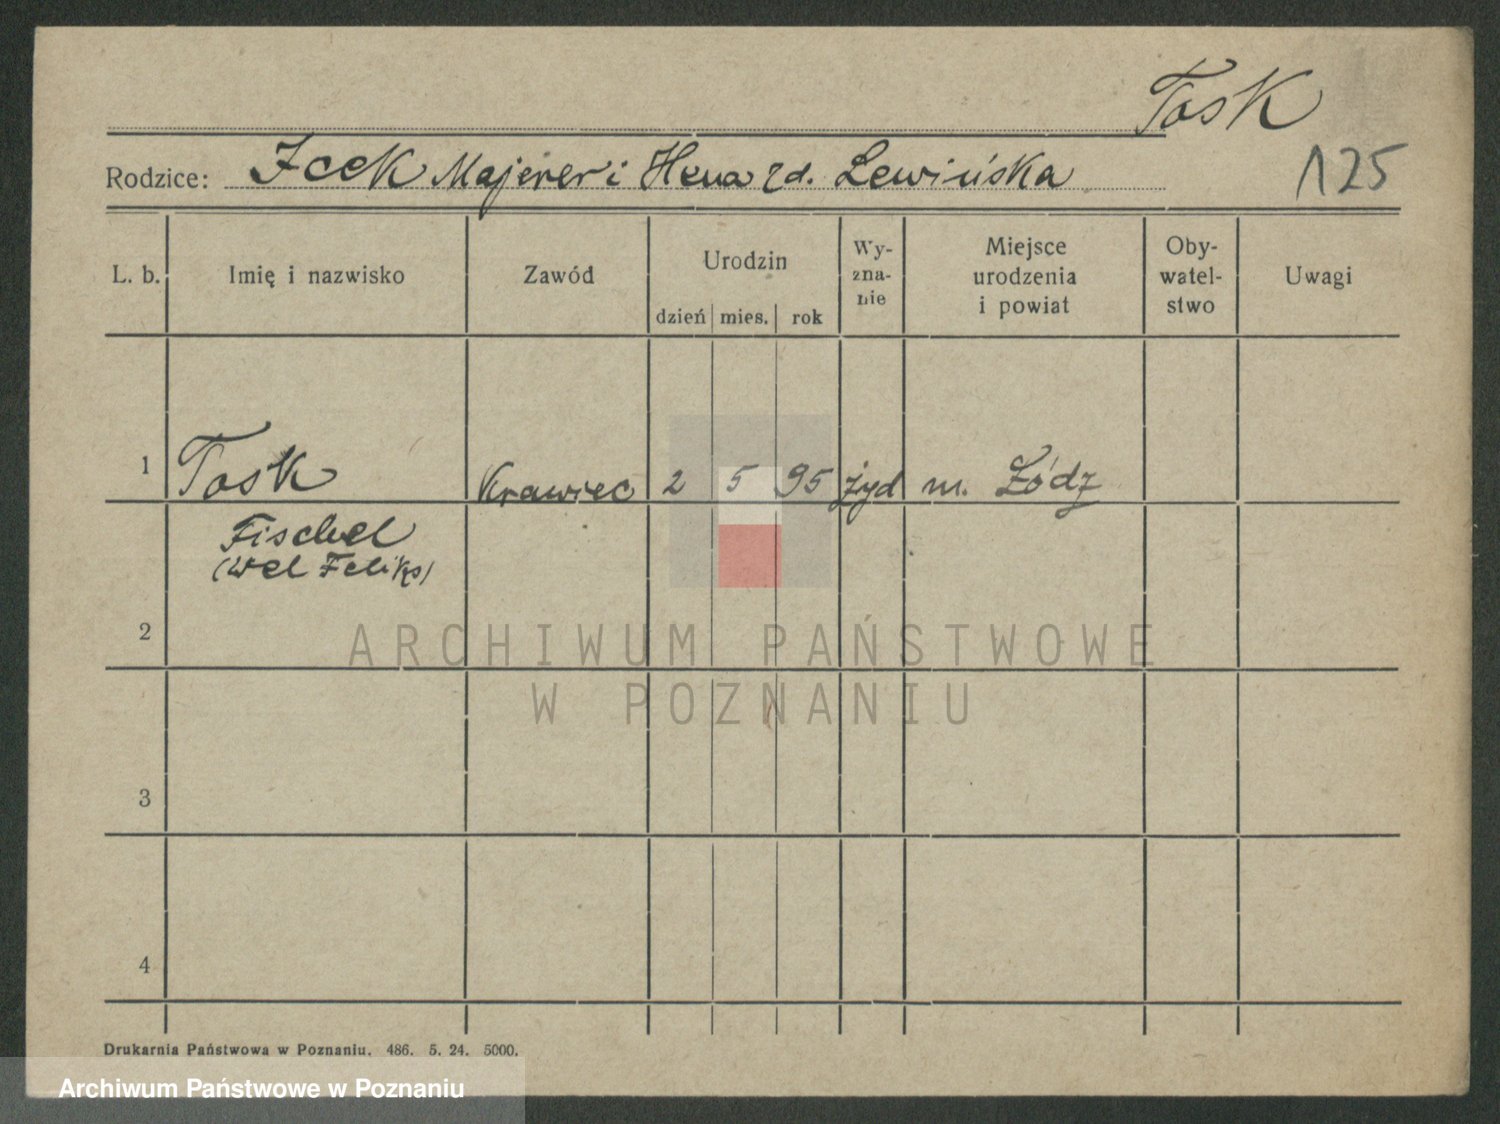 Task
Rodzice: Icek Majerer i Hena zd. Lewińska
125
L. b. Imię i nazwisko Zawód Urodzin dzień mies. rok Wy-zna-nie Miejsce urodzenia i powiat Oby-watel-stwo Uwagi
1 Task Krawiec 2 5 95 żyd m. Łódź
Fischel
(vel Feliks)
2
ARCHIWUM PAŃSTWOWE
W POZNANIU
3
4
Drukarnia Państwowa w Poznaniu. 486. 5. 24. 5000.
Archiwum Państwowe w Poznaniu